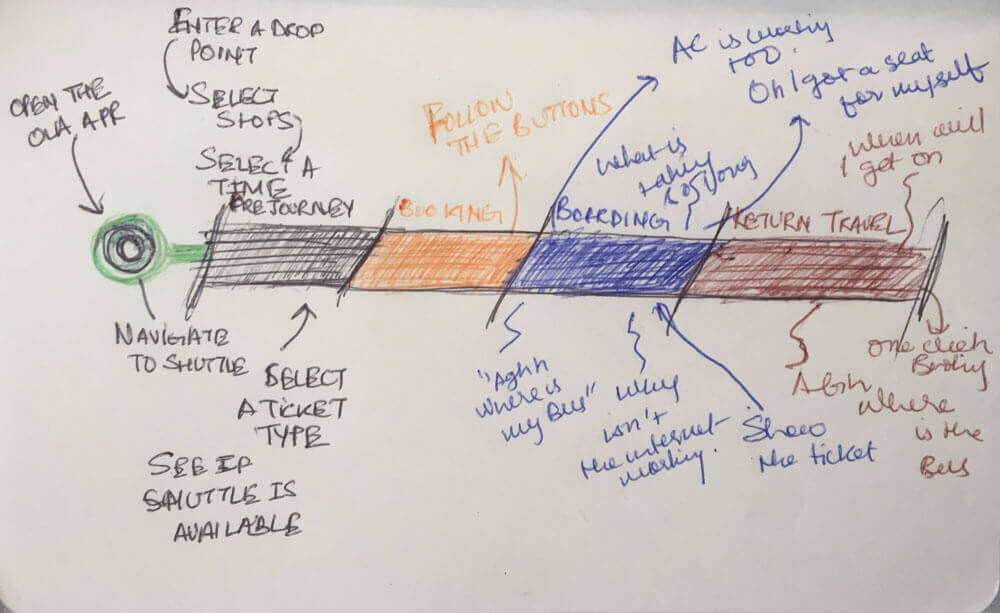 ENTER A DROP
POINT
OPEN THE
OLA APP
SELECT
STOPS
SELECT A
TIME
PREJOURNEY
NAVIGATE
TO SHUTTLE
SELECT
A TICKET
TYPE
SEE IF
SHUTTLE IS
AVAILABLE
FOLLOW
THE BUTTONS
BOOKING
AC is working
too.
Oh I got a seat
for myself
What is
taking
so long
BOARDING
"Aghh
where is
my Bus"
Why
isn't
the internet
working.
Show
the ticket
When will
I get on
RETURN TRAVEL
One click
Agh
where
is the
Bus